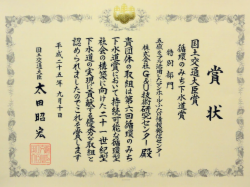 賞状
国土交通大臣賞
循環のみち下水道賞
特別部門
株式会社G&U技術研究センター殿
貴団体の取組は第六回循環のみち
下水道賞において持続可能な循環型
社会の構築に向けた二十一世紀型
下水道の実現に貢献する優秀な取組と
認められましたのでこれを賞します
平成二十五年九月十日
国土交通大臣
太田昭宏